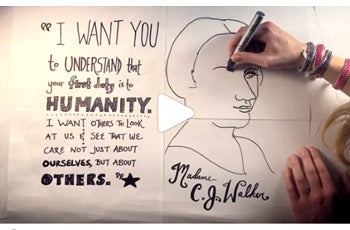 " I WANT YOU
to UNDERSTAND that
your first duty is to
HUMANITY.
I WANT OTHERS TO LOOK
AT US & SEE THAT WE
CARE NOT JUST ABOUT
OURSELVES, BUT ABOUT
OTHERS. "
Madame
C.J. Walker